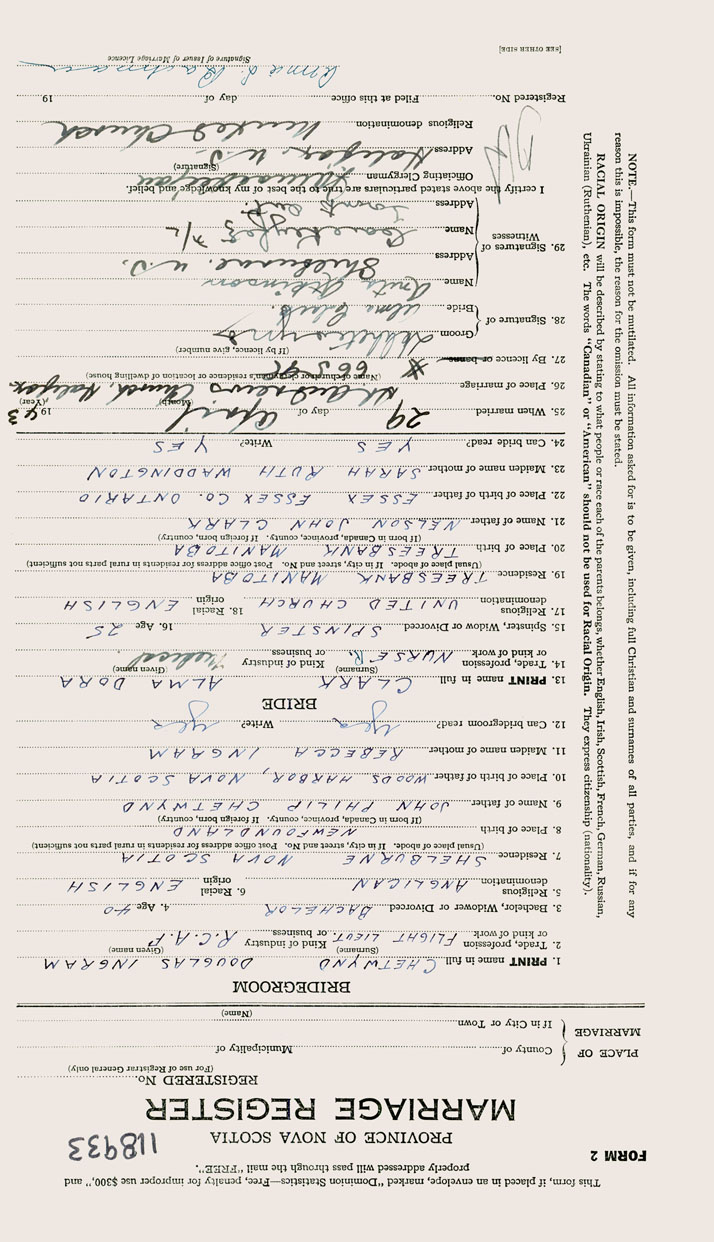 This form, if placed in an envelope, marked "Dominion Statistics—Free, penalty for improper use $300," and
properly addressed will pass through the mail "FREE".
FORM 2
PROVINCE OF NOVA SCOTIA
118933
MARRIAGE REGISTER
REGISTERED No.
(For use of Registrar General only)
PLACE OF MARRIAGE
County of Municipality of
If in City or Town
(Name)
BRIDEGROOM
1. PRINT name in full CHETWYND DOUGLAS INGRAM
(Surname) (Given name)
2. Trade, profession or kind of work FLIGHT LIEUT. Kind of industry or business R.C.A.F
3. Bachelor, Widower or Divorced BACHELOR 4. Age 40
5. Religious denomination ANGLICAN 6. Racial origin ENGLISH
7. Residence SHELBURNE NOVA SCOTIA
(Usual place of abode. If in city, street and No. Post office address for residents in rural parts not sufficient)
8. Place of birth NEWFOUNDLAND
(If born in Canada, province, county. If foreign born, country)
9. Name of father JOHN PHILIP CHETWYND
10. Place of birth of father WOODS HARBOR, NOVA SCOTIA
11. Maiden name of mother REBECCA INGRAM
12. Can bridegroom read? yes Write? yes
BRIDE
13. PRINT name in full CLARK ALMA DORA
(Surname) (Given name)
14. Trade, profession or kind of work NURSE R. Kind of industry or business Medical
15. Spinster, Widow or Divorced SPINSTER 16. Age 25
17. Religious denomination UNITED CHURCH 18. Racial origin ENGLISH
19. Residence TREESBANK MANITOBA
(Usual place of abode. If in city, street and No. Post office address for residents in rural parts not sufficient)
20. Place of birth TREESBANK MANITOBA
(If born in Canada, province, county. If foreign born, country)
21. Name of father NELSON JOHN CLARK
22. Place of birth of father ESSEX ESSEX CO. ONTARIO
23. Maiden name of mother SARAH RUTH WADDINGTON
24. Can bride read? YES Write? YES
25. When married 29 day of April 1943
(Month) (Year)
26. Place of marriage St Andrews Church, Halifax
(Name of church or clergyman's residence or location of dwelling house)
27. By licence or banns
(If by licence, give number)
28. Signature of
Groom
Bride Alma Clark
29. Signatures of Witnesses
Name Anita Atkinson
Address Shelburne. N.S.
Name
Address
I certify the above stated particulars are true to the best of my knowledge and belief.
Officiating Clergyman
(Signature)
Address Halifax N.S.
Religious denomination United Church
Registered No. Filed at this office day of 19
Signature of Issuer of Marriage Licence
[SEE OTHER SIDE]
NOTE.—This form must not be mutilated. All information asked for is to be given, including full Christian and surnames of all parties, and if for any
reason this is impossible, the reason for the omission must be stated.
RACIAL ORIGIN will be described by stating to what people or race each of the parents belongs, whether English, Irish, Scottish, French, German, Russian,
Ukrainian (Ruthenian), etc. The words "Canadian" or "American" should not be used for Racial Origin. They express citizenship (nationality).